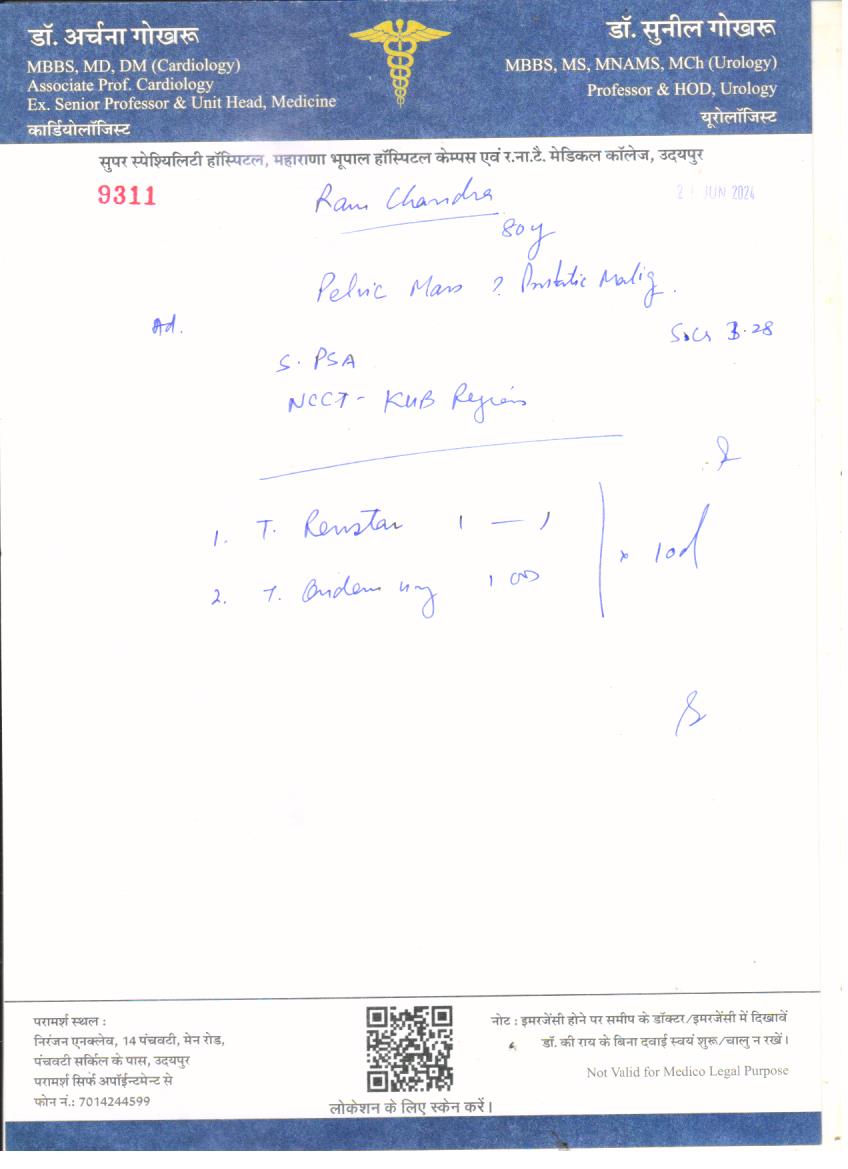 डॉ. अर्चना गोखरू
MBBS, MD, DM (Cardiology)
Associate Prof. Cardiology
Ex. Senior Professor & Unit Head, Medicine
कार्डियोलॉजिस्ट
डॉ. सुनील गोखरू
MBBS, MS, MNAMS, MCh (Urology)
Professor & HOD, Urology
यूरोलॉजिस्ट
सुपर स्पेश्यिलिटी हॉस्पिटल, महाराणा भूपाल हॉस्पिटल केम्पस एवं र.ना.टै. मेडिकल कॉलेज, उदयपुर
9311
Ram Chandra
JUN 2024
80y
Pelvic Mass ? Prostatic Malig.
Ad.
S. PSA
NCCT - KUB Region
1. T. 1 — 1
2. T. 1 OD
x 10d
परामर्श स्थल :
निरंजन एनक्लेव, 14 पंचवटी, मेन रोड,
पंचवटी सर्किल के पास, उदयपुर
परामर्श सिर्फ अपॉईन्टमेन्ट से
फोन नं.: 7014244599
लोकेशन के लिए स्केन करें।
नोट : इमरजेंसी होने पर समीप के डॉक्टर/इमरजेंसी में दिखावें
डॉ. की राय के बिना दवाई स्वयं शुरू/चालु न रखें।
Not Valid for Medico Legal Purpose